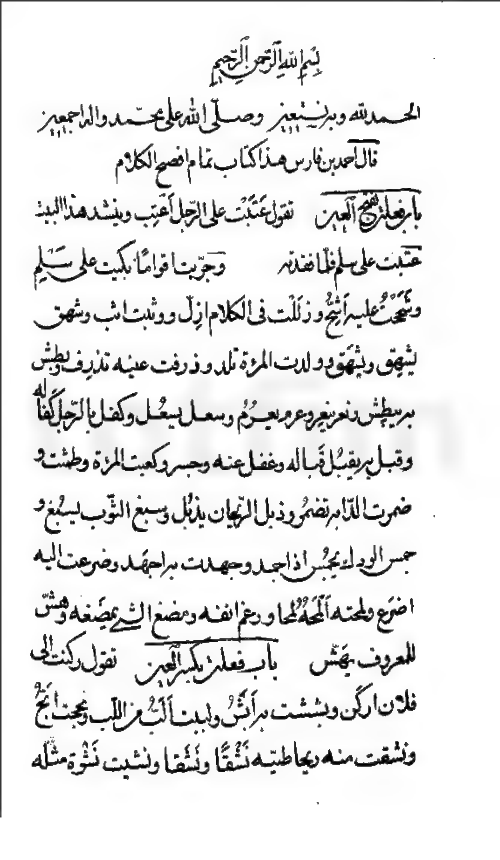 بسم الله الرحمن الرحيم
الحمد لله وبه نستعين وصلى الله على محمد واله اجمعين
قال احمد بن فارس هذا كتاب تمام افصح الكلام
باب فعلت بفتح العين تقول عَتَبْتُ على الرجل أعتِب وينشد هذا البيت
عتبت على سلم فلما فقدته وجربت اقواما بكيت على سَلْمِ
وشَحَحْتُ عليه أشِحُّ وزَلَلْت في الكلام ازِلّ ووثبت اثب وشهق
يشهِق ويشهَق وولدت المرءة تلد وذرفت عينه تذرِف وبطش
به يبطِش ونعر ينعر وعرم يعرُم وسعل يسعُل وكفل بالرجل كَفَالَه
وقبل به يقبُل قَباله وغفل عنه وخسر وكعبت المرءة وطمثت و
ضمرت الدابه تضمُر وذبل الريحان يذبُل وسبغ الثوب يسبُغ و
جمس الودك يجمُس اذا جمد وجهدت به اجهَد وضرعت اليه
اضرَع ولمحته ألمَحُهُ لمحا ورغم انفه ومضغ الشيء يمضَغه وهشّ
للمعروف يَهَشّ باب فعلت بكسر العين تقول ركنت الى
فلان اركَن وبششت به أبَشّ ولببت ألَبّ من اللب وبححت ابَحّ
ونشقت منه ريحا طيبه نَشْقًا ونَشَقا ونشيت نَشْوة مثله